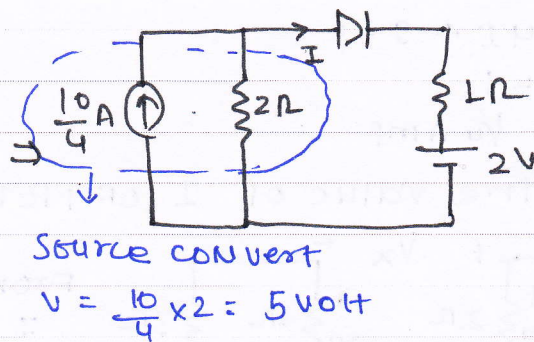 I
10/4 A
2Ω
1Ω
2V
Source convert
V = 10/4 × 2 = 5 volt